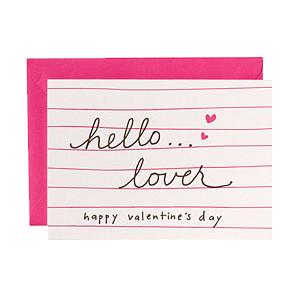 hello...
lover
happy valentine's day